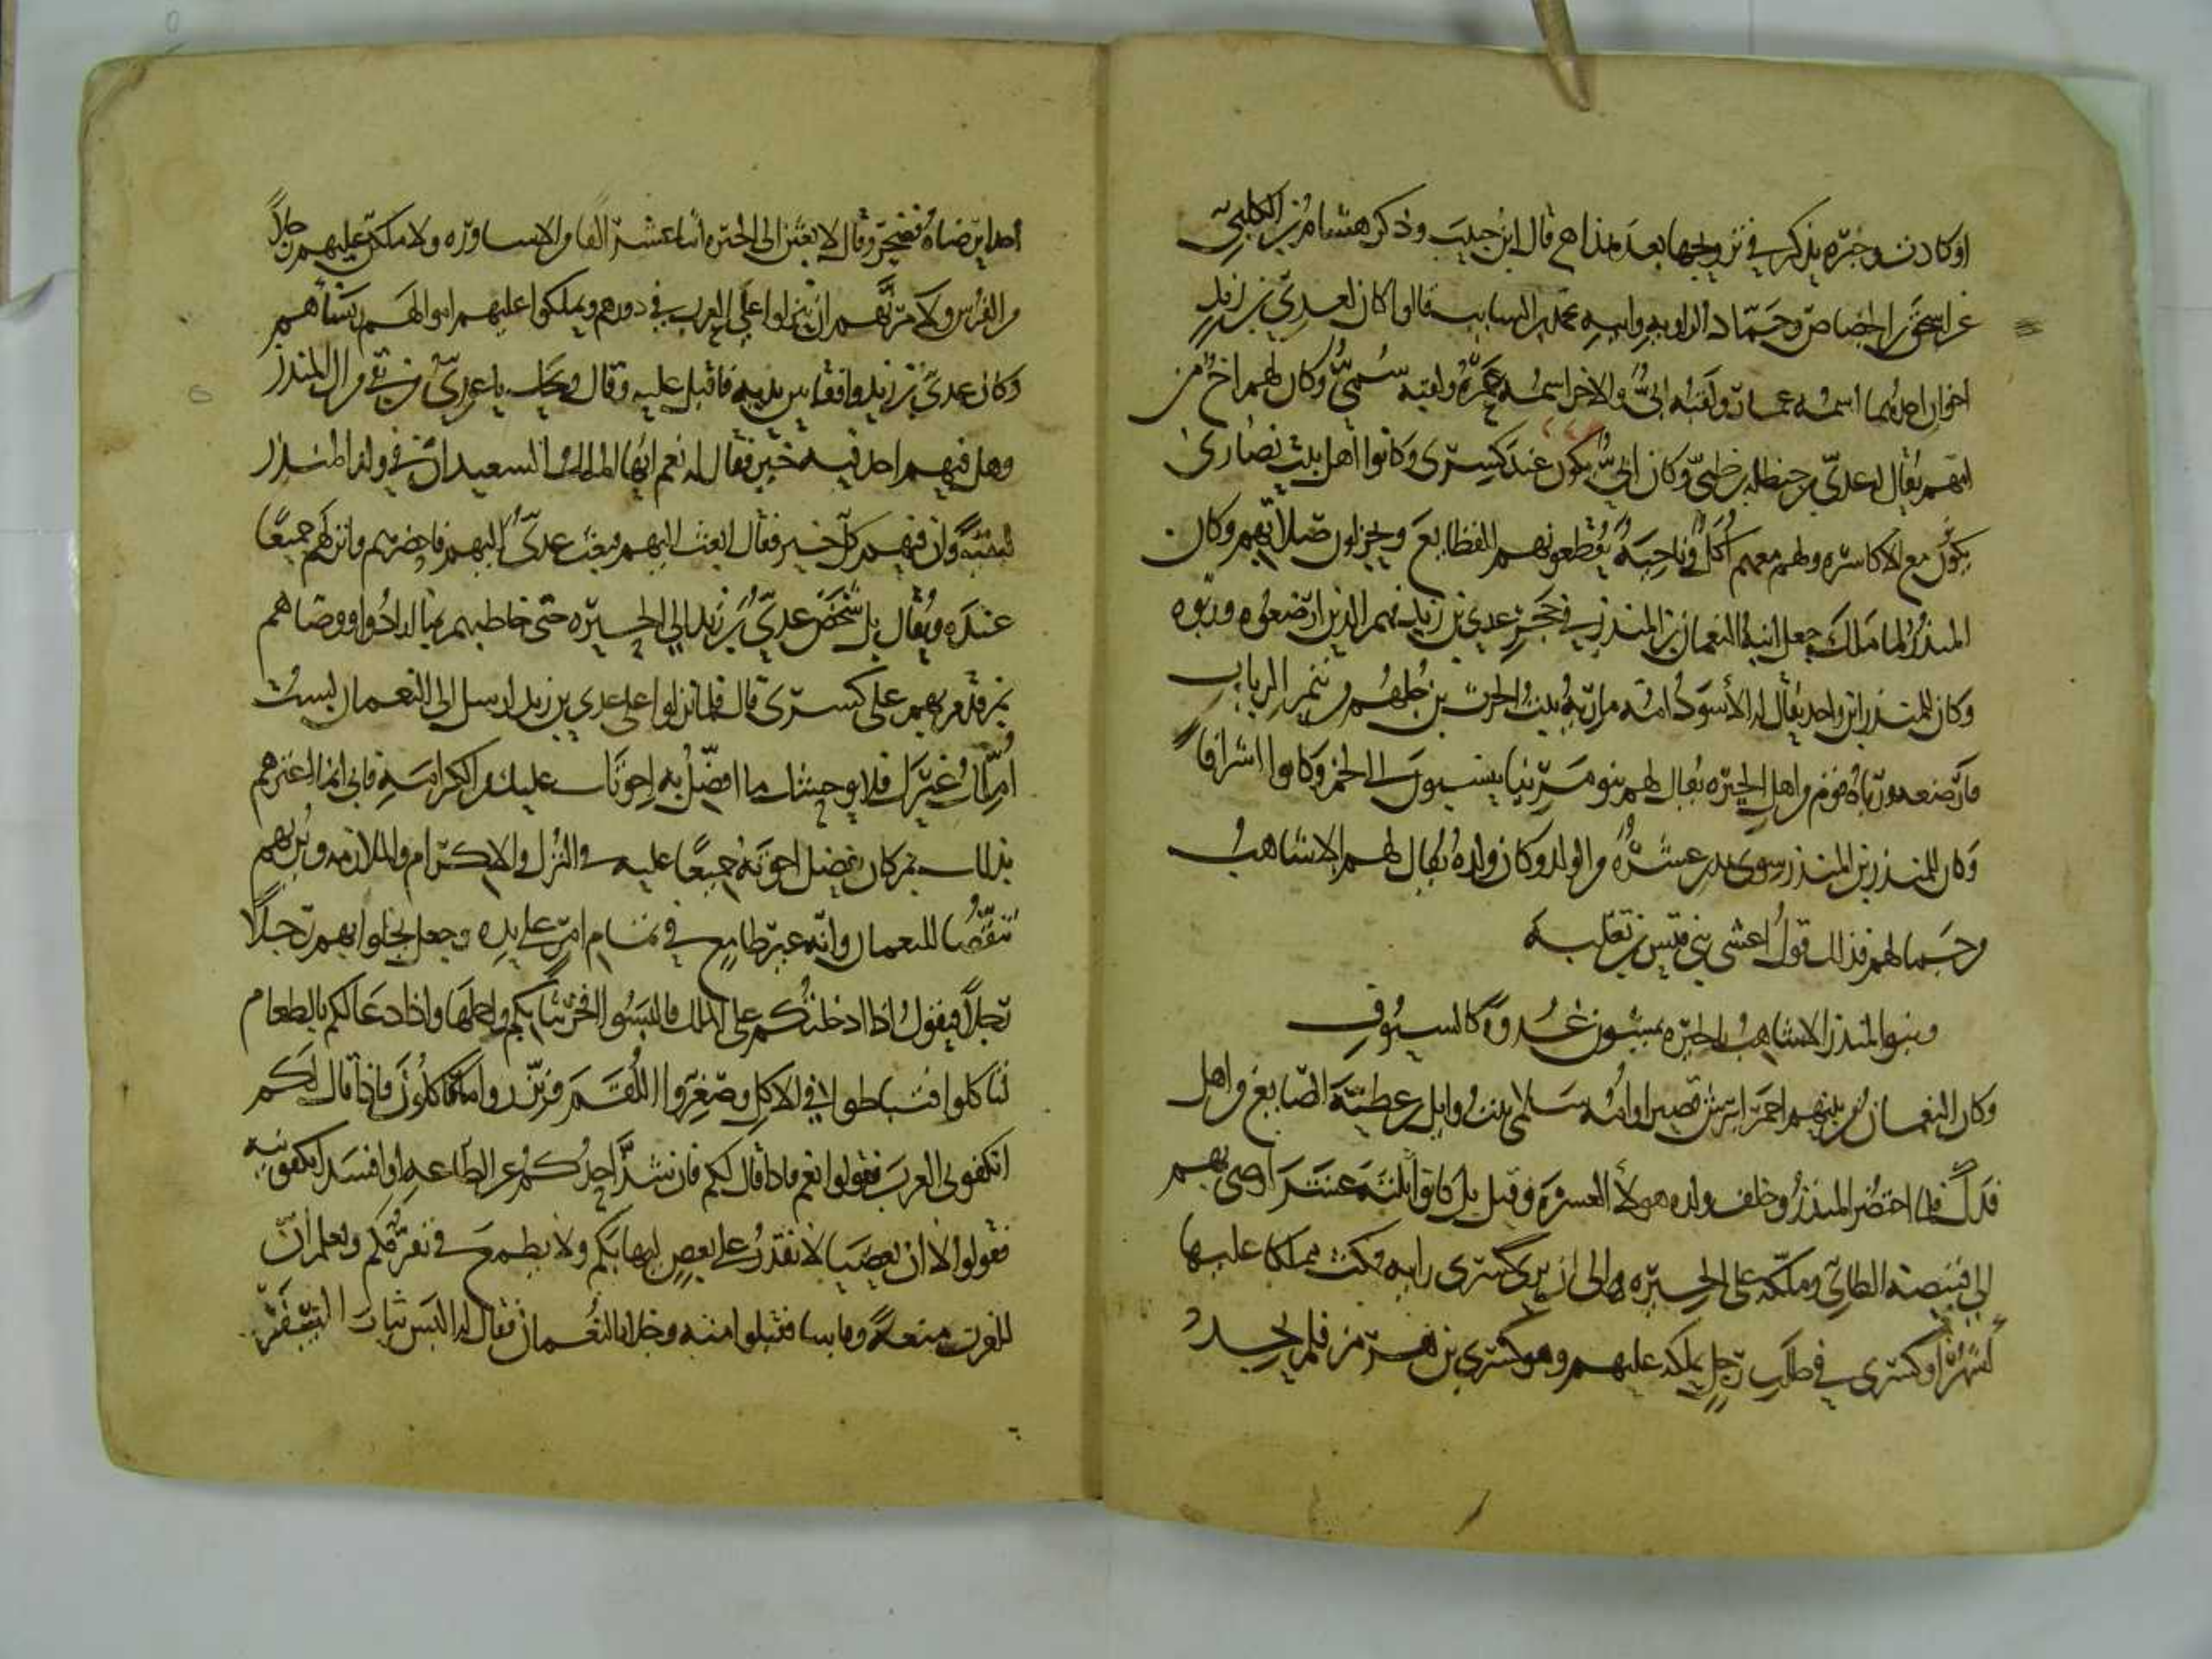 او كادت وخبره يذكر في تزويجها بعد هذا قال ابن حبيب وذكر هشام بن الكلبي
عن اسحق بن الجصاص وحماد الراوية وابيه محمد بن السايب قالوا كان لعدي بن زيد
اخوان احدهما اسمه عمار ولقبه ابي والاخر اسمه عمرو ولقبه سمي وكان لهم اخ من
امهم يقال له عدي بن حنظلة من طيئ وكان ابي يكون عند كسرى وكانوا اهل بيت نصارى
يكون مع الاكاسره ولهم معهم اكل وناحية يقطعونهم القطايع ويجزلون صلاتهم وكان
المنذر لما ملك جعل ابنه النعمان بن المنذر في حجر عدي بن زيد فهم الذين ارضعوه وربوه
وكان للمنذر ابن واحد يقال له الأسود امه مارية بنت الحرث بن جلهم من تيم الرباب
فارضعه ورباه قوم من اهل الحيره يقال لهم بنو مرينا ينسبون الى لخم وكانوا اشرافا
وكان للمنذر بن المنذر سوى هذين عشرة من الولد وكان ولده يقال لهم الاشاهب
من جمالهم فذلك قول اعشى بني قيس بن ثعلبة
وبنو المنذر الاشاهب بالحيره يمشون غدوة كالسيوف
وكان النعمان من بينهم احمر ابرش قصيرا وامه سلمى بنت وايل بن عطية الصايغ من اهل
فدك فلما احتضر المنذر وخلف ولده هولاء العشره وقيل بل كانوا ثلثة عشر اوصى بهم
الى قبيصة الطائي وملكه على الحيره الى ان يرى كسرى رايه فمكث مملكا عليها
اشهرا وكسرى في طلب رجل يملكه عليهم وهو كسرى بن هرمز فلم يجد
احدا يرضاه فضجر وقال لابعثن الى الحيره اثنا عشر الفا من الاساوره ولاملكن عليهم رجلا
من الفرس ولآمرنهم ان ينزلوا على العرب في دورهم ويملكوا عليهم اموالهم ونساهم
وكان عدي بن زيد واقفا بين يديه فاقبل عليه وقال ويحك يا عدي من بقي من ال المنذر
وهل فيهم احد فيه خير فقال له نعم ايها الملك السعيد ان في ولد المنذر
لبقية وان فيهم كل خير فقال ابعث اليهم فبعث عدي اليهم فاحضرهم وانزلهم جميعا
عنده ويقال بل شخص عدي بن زيد الى الحيره حتى خاطبهم بما ارادوا ووصاهم
ثم قدم بهم على كسرى قال فلما نزلوا على عدي بن زيد ارسل الى النعمان لست
املك غيرك فلا يوحشنك ما افضل به اخوتك عليك من الكرامة فاني انما اغرهم
بذلك ثم كان يفضل اخوته جميعا عليه في النزل والاكرام والملازمه ويريهم
تنقصا للنعمان وانه غير طامع في تمام امر على يده وجعل يخلوا بهم رجلا
رجلا فيقول اذا ادخلتكم على الملك فالبسوا افخر ثيابكم واجملها واذا دعا لكم بالطعام
لتاكلوا فتباطوا في الاكل وصغروا اللقم ونزروا ما تاكلون فاذا قال لكم
اتكفوني العرب فقولوا نعم فاذا قال لكم فان شذ احدكم عن الطاعه او افسد اتكفونيه
فقولوا لا ان بعضنا لا يقدر على بعض ليهابكم ولا يطمع في تفرقكم ويعلم ان
للعرب منعة وباسا فقبلوا منه وخلا بالنعمان فقال له البس ثياب السفر